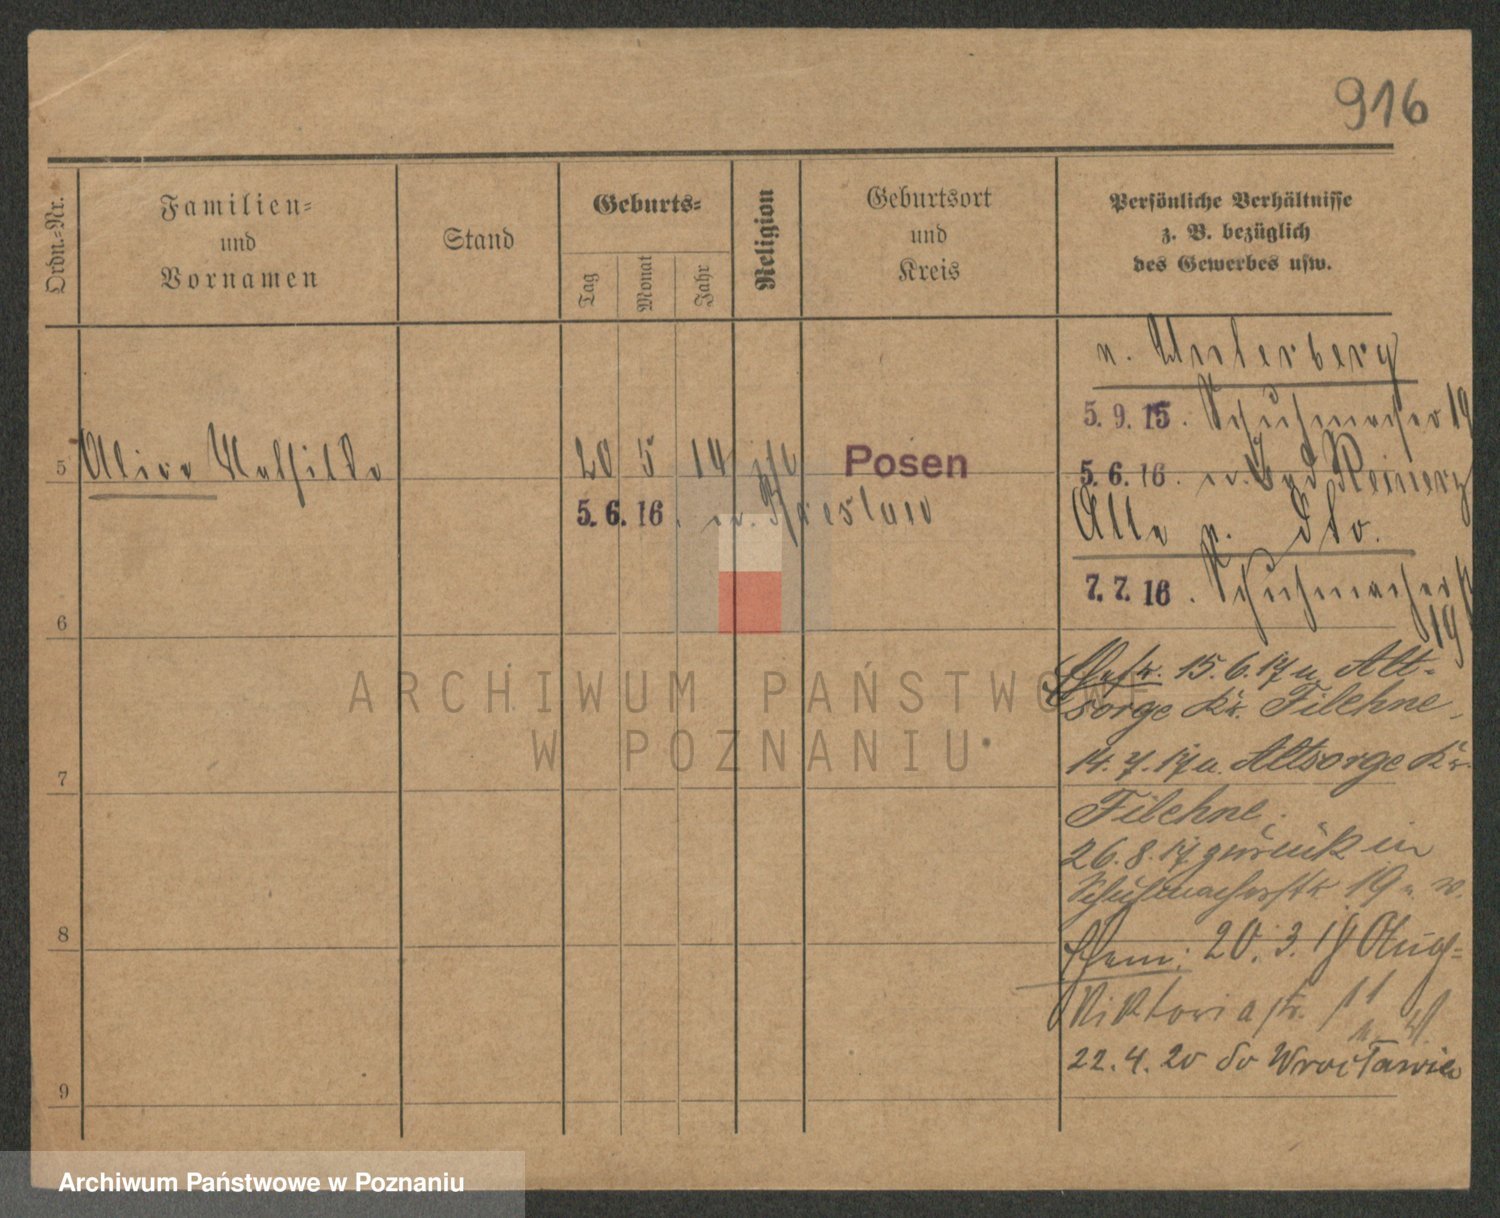 916
Ordn.-Nr.
Familien-
und
Vornamen
Stand
Geburts-
Tag
Monat
Jahr
Religion
Geburtsort
und
Kreis
Persönliche Verhältnisse
z. B. bezüglich
des Gewerbes usw.
n. Unterberg
5.9.15. Schuhmacher 19
5 Alice Mathilde 20 5 14 Posen
5.6.16. n. Bad Reinerz
5.6.16. n. Breslau
Alle v. dto.
7.7.16. Schuhmacherst
19
6
Chefr. 15.6.17 n. Alt-
sorge Kr. Filehne.
7
14.7.17 n. Altsorge Kr.
Filehne.
26.8.17 zurück in
Schuhmacherstr 19
8
20.3.19 Aug-
Viktoriastr. 11
22.4.20 do Wrocławia
9
ARCHIWUM PAŃSTWOWE
W POZNANIU
Archiwum Państwowe w Poznaniu